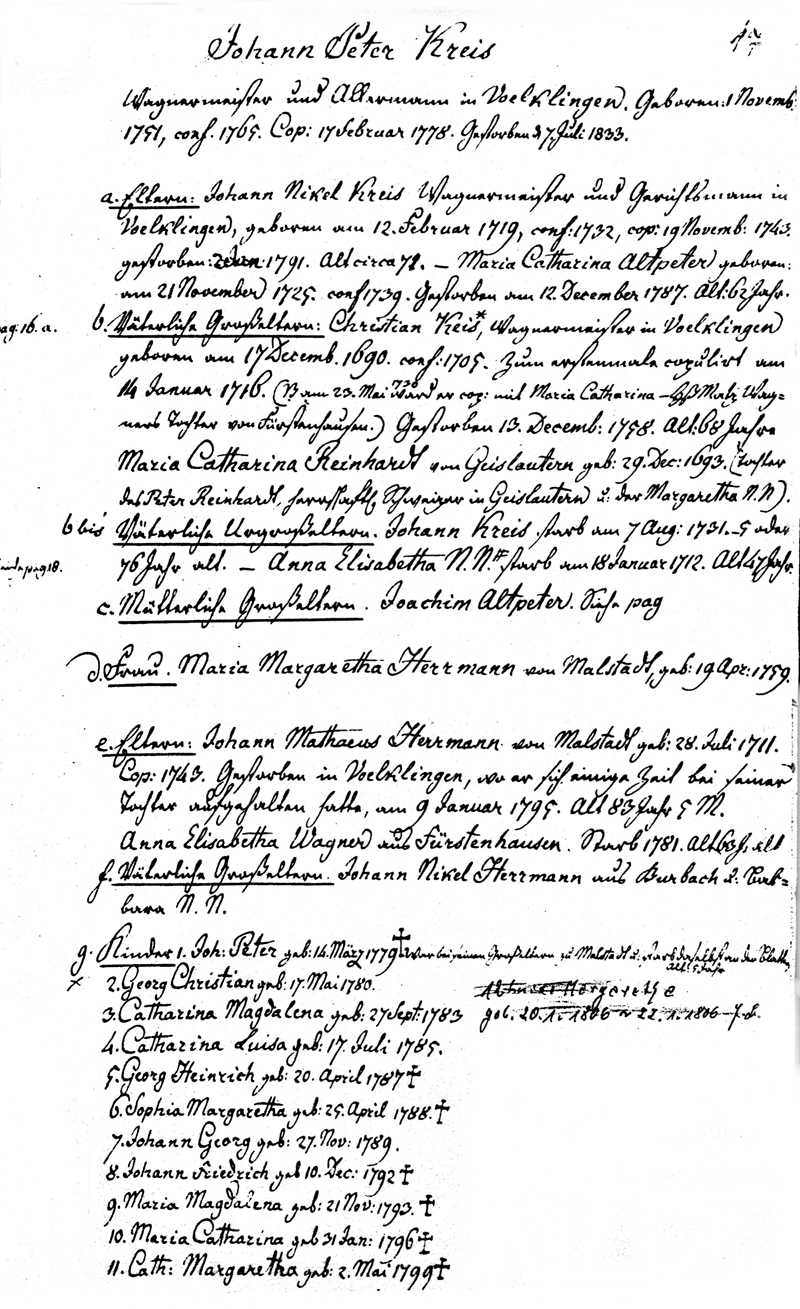 Johann Peter Kreis
17
Wagnermeister und Altermann in Voelklingen. Geboren: 1 Novemb:
1751, conf. 1765. Cop: 17 Februar 1778. Gestorben d 7 Juli 1833.
a. Eltern: Johann Nikel Kreis Wagnermeister und Gerichtsmann in
Voelklingen, geboren am 12. Februar 1719, conf: 1732, cop: 19 Novemb: 1743.
gestorben: 1791. Alt circa 72. – Maria Catharina Altpeter geboren:
am 21 November 1725. conf 1739. Gestorben am 12. December 1787. Alt: 62 Jahr.
pag: 16. a.
b. Väterliche Großeltern: Christian Kreis*, Wagnermeister in Voelklingen
geboren am 17 Decemb. 1690. conf: 1705. Zum erstenmale copulirt am
14 Januar 1716. (B am 23. Mai ward er cop: mit Maria Catharina – Matz Wag=
ners Tochter von Fürstenhausen.) Gestorben 13. Decemb: 1758. Alt: 68 Jahre
Maria Catharina Reinhardt von Geislautern geb: 29. Dec: 1693. (Tochter
des Peter Reinhardt, herrschaftl. Schweizer in Geislautern u: der Margaretha N.N).
b bis Väterliche Urgroßeltern. Johann Kreis starb am 7 Aug: 1731. 75 oder
76 Jahr alt. – Anna Elisabetha N.N. starb am 18 Januar 1712. Alt 47 Jahr.
siehe pag 18.
c. Mütterliche Großeltern. Joachim Altpeter. Siehe pag
d. Frau. Maria Margaretha Herrmann von Malstadt, geb: 19 Apr: 1759.
e. Eltern: Johann Mathaeus Herrmann von Malstadt geb: 28. Juli 1711.
Cop: 1743. Gestorben in Voelklingen, wo er sich einige Zeit bei seiner
Tochter aufgehalten hatte, am 9 Januar 1795. Alt 83 Jahr 5 M.
Anna Elisabetha Wagner aus Fürstenhausen. Starb 1781. Alt 63 J. alt
f. Väterliche Großeltern. Johann Nikel Herrmann aus Burbach u: Bar=
bara N.N.
g. Kinder 1. Joh: Peter geb: 14. März 1779 ✝ war bei seinen Großeltern zu Malstadt u. starb daselbst an den Blattern
alt 5 Jahr
x 2. Georg Christian geb: 17. Mai 1780.
Margarethe
3. Catharina Magdalena geb: 27 Sept: 1783
geb. 20. 1. 1806 ~ 22. 1. 1806
4. Catharina Luisa geb: 17. Juli 1785.
5. Georg Heinrich geb: 20. April 1787 ✝
6. Sophia Margaretha geb: 25. April 1788. ✝
7. Johann Georg geb: 27. Nov: 1789.
8. Johann Friedrich geb 10. Dec: 1792 ✝
9. Maria Magdalena geb: 21 Nov: 1793. ✝
10. Maria Catharina geb 31 Jan: 1796 ✝
11. Cath: Margaretha geb: 2. Mai 1799 ✝